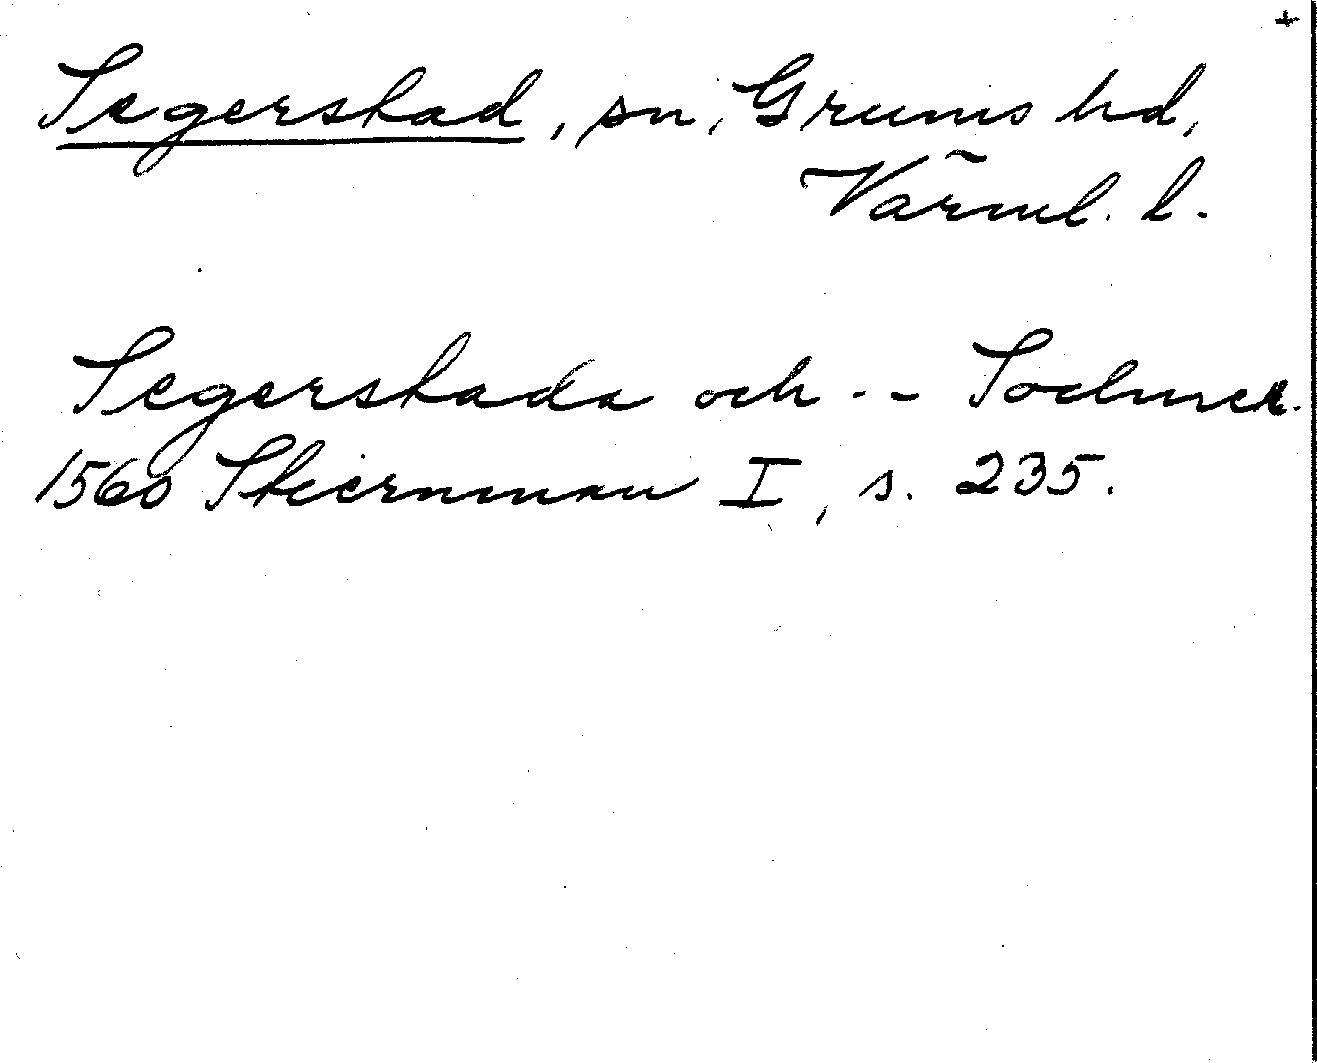 Segerstad, sn, Grums hd,
Värml. l.
Segerstada och -- Sochner.
1560 Stiernman I, s. 235.